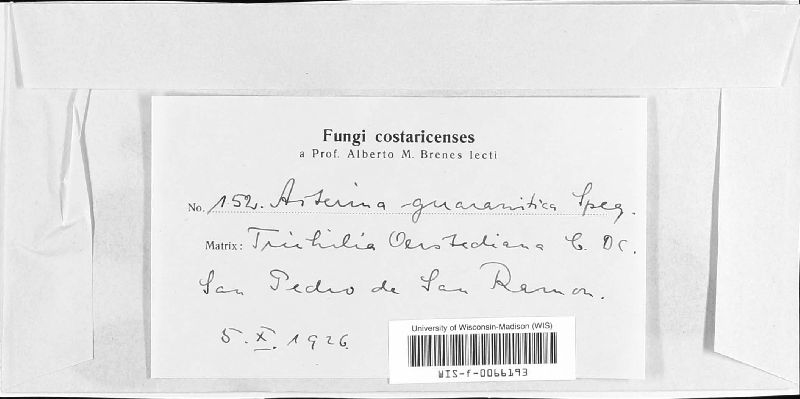 Fungi costaricenses
a Prof. Alberto M. Brenes lecti
No. 152. Asterina guaranitica Speg.
Matrix: Trichilia Oerstediana C. DC.
San Pedro de San Ramon.
5. X. 1926.
University of Wisconsin-Madison (WIS)
WIS-f-0066193